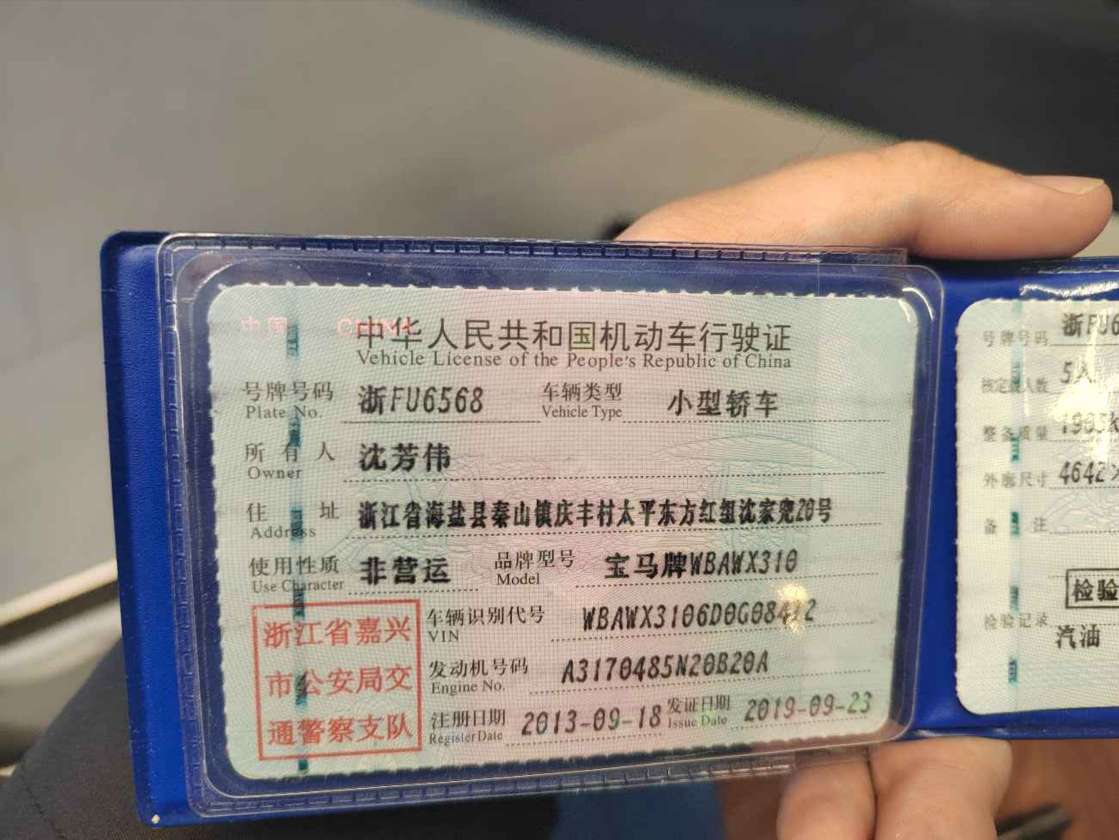 中国 CHINA
中华人民共和国机动车行驶证
Vehicle License of the People's Republic of China
号牌号码 浙FU6568 车辆类型 小型轿车
Plate No. Vehicle Type
所有人 沈芳伟
Owner
住址 浙江省海盐县秦山镇庆丰村太平东方红组沈家兜20号
Address
使用性质 非营运 品牌型号 宝马牌WBAWX310
Use Character Model
浙江省嘉兴
市公安局交
通警察支队
车辆识别代号 WBAWX3106D0G08412
VIN
发动机号码 A3170485N20B20A
Engine No.
注册日期 2013-09-18 发证日期 2019-09-23
Register Date Issue Date
号牌号码 浙FU6
核定载人数 5人
整备质量 1905k
外廓尺寸 4642
备注
检验
检验记录
汽油